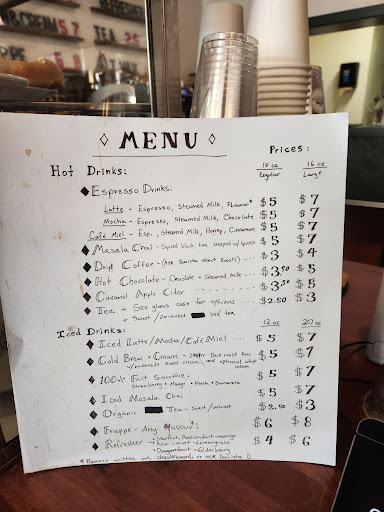 REFRESHER
CREAM 5 7
TEA 2.5
PPE 6 8
◇ MENU ◇
Prices:
Hot Drinks:
10 oz Regular 16 oz Large
◆ Espresso Drinks:
Latte - Espresso, Steamed Milk, Flavor* $5 $7
Mocha - Espresso, Steamed Milk, Chocolate $5 $7
Café Miel - Esp., Steamed Milk, Honey, Cinnamon $5 $7
◆ Masala Chai - Spiced black tea steeped w/ $5 $7
◆ Drip Coffee - (Ask barista about Roasts) $3 $4
◆ Hot Chocolate - Chocolate + Steamed Milk $3.50 $5
◆ Caramel Apple Cider $3.50 $5
◆ Tea + See glass case for options $2.50 $3
+ Sweet / Un-sweet iced tea
Iced Drinks:
12 oz 20 oz
◆ Iced Latte/Mocha/Café Miel $5 $7
◆ Cold Brew + Cream - roast
w/ sweet cream, and optional $5 $7
◆ 100% Fruit Smoothie -
Strawberry + Mango • Peach + Banana $5 $7
◆ Iced Masala Chai $5 $7
◆ Organic Tea - Sweet/unsweet $2.50 $3
◆ Frappe - Any flavour*: $6 $8
◆ Refresher - • Starfruit - Passionfruit - mango
• Kiwi - Mint - Lemongrass $4 $6
• Dragonfruit - Elderberry
* Flavors written on chalkboard or ask barista :)